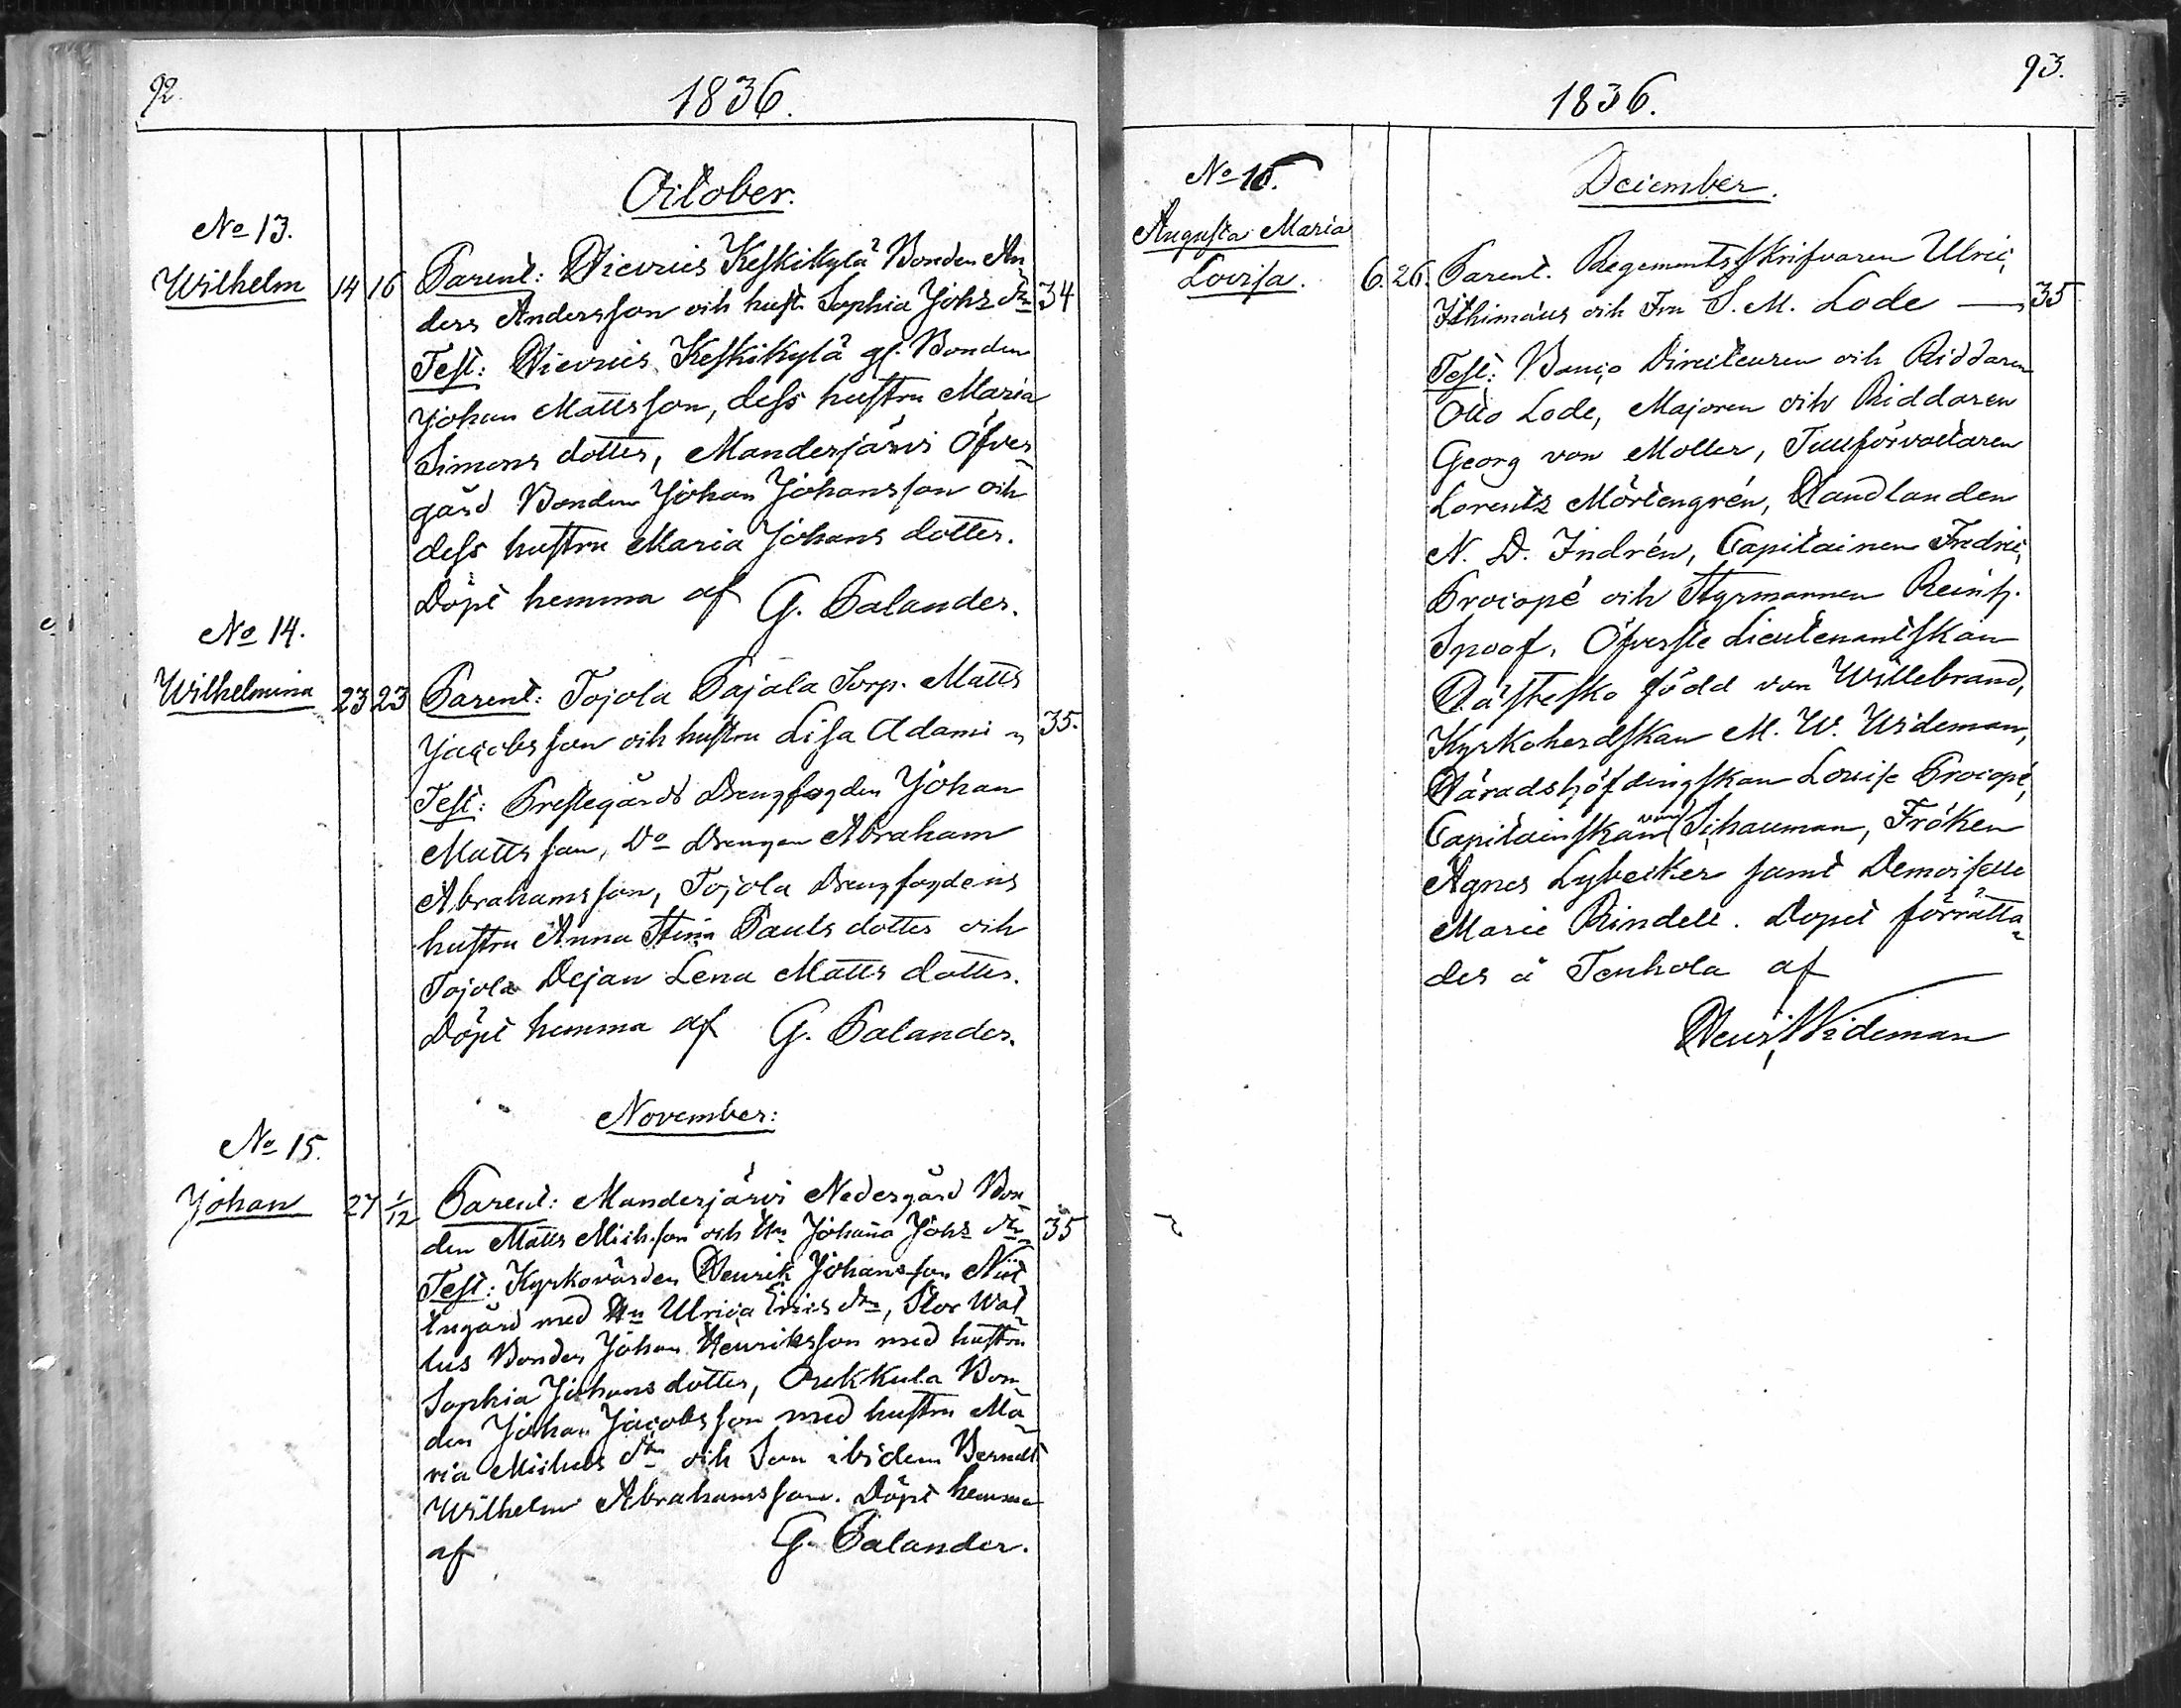 92.
1836.
October.
No 13.
Wilhelm 14 16 Parent: Hievries Keskikylä Bonden An-
ders Andersson och hust. Sophia Johs dr 34
Test: Hievries Keskikylä gl. Bonden
Johan Mattsson, dess hustru Maria
Simons dotter, Manderjärvi Öfver-
gård Bonden Johan Johansson och
dess hustru Maria Johans dotter.
Döpt hemma af G. Palander.
No 14.
Wilhelmina 23 23 Parent: Tojola Pajala Torp. Matts
Jacobsson och hustru Lisa Adami 35.
Test: Prestegårds Drengfogden Johan
Mattsson, Do Drengen Abraham
Abrahamsson, Tojola Drengfogdens
hustru Anna Stina Pauls dotter och
Tojola Dejan Lena Matts dotter.
Döpt hemma af G. Palander.
November:
No 15.
Johan 27 1/12 Parent: Manderjärvi Nedergård Bon-
den Matts Mich.son och Hu Johana Johs dr 35
Test: Kyrkovärden Henrik Johansson Niit-
tugård med Hu Ulrica Erics dr, Stor Wal-
lus Bonden Johan Henriksson med hustru
Sophia Johans dotter, Outkkula Bon-
den Johan Jacobsson med hustru Ma-
ria Michels dr och Son ibidem Berndt
Wilhelm Abrahamsson. Döpt hemma
af G. Palander.
93.
1836.
December.
No 16.
Augusta Maria
Lovisa. 6. 26. Parent. Regementsskrifvaren Ulric
Ithimæus och Fru S. M. Lode 35
Test: Banco Directeuren och Riddaren
Otto Lode, Majoren och Riddaren
Georg von Moller, Tullförvaltaren
Lorentz Mörtengrén, Handlanden
N. D. Indrén, Capitainen Fredric
Procopé och Styrmannen Reinh.
Spoof, Öfverste Lieutenantskan
Hästesko född von Willebrand,
Kyrkoherdskan M. W. Wideman,
Häradshöfdingskan Louise Procopé,
Capitainskan von Schauman, Fröken
Agnes Lybecker samt Demoiselle
Marie Rindell. Dopet förrätta-
des å Tenhola af
Henr. Wideman